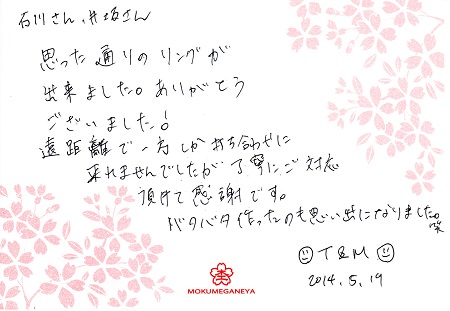 石川さん、井坂さん
思った通りのリングが
出来ました。ありがとう
ございました!
遠距離で一方しか打ち合わせに
来れませんでしたが丁寧にご対応
頂けて感謝です。
バタバタ作ったのも思い出になりました。笑
T & M
2014.5.19
MOKUMEGANEYA